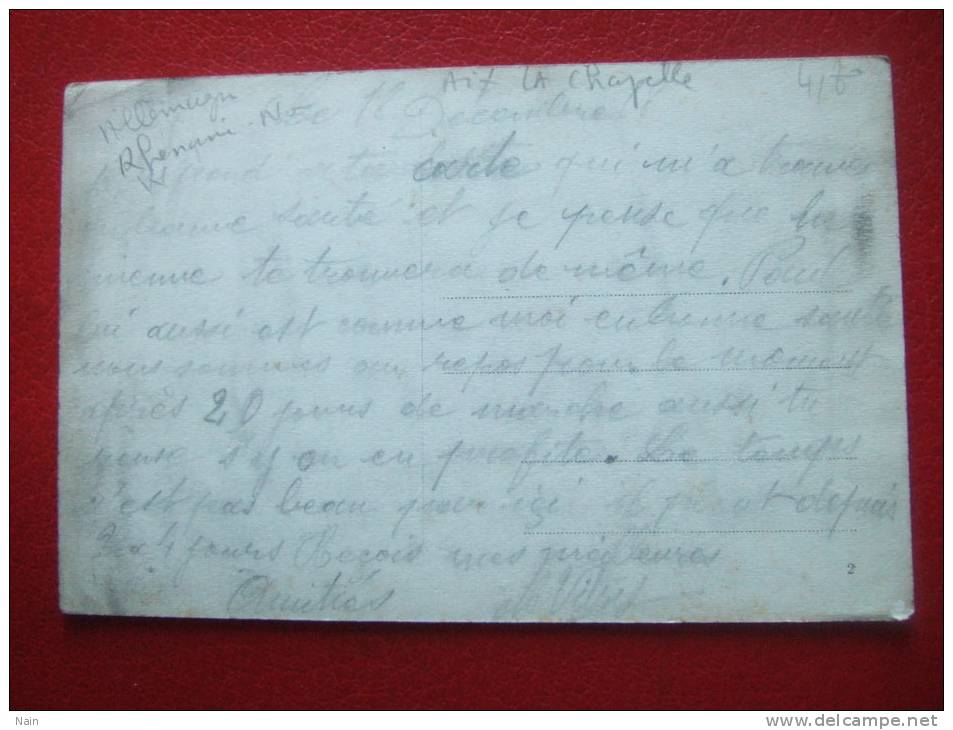 Aix LA Chapelle
Allemagn
Décembre
répond a ta carte qui m'a trouver
en bonne santé et je pense que la
mienne te trouvera de même. Paul
lui aussi est comme moi en bonne santé
nous sommes au repos pour le moment
après 20 jours de marche aussi tu
pense s'y on en profite. Le temps
n'est pas beau par içi il pleut depuis
3 a 4 jours Reçois mes meilleures
Amitiés
2
Nain
www.delcampe.net